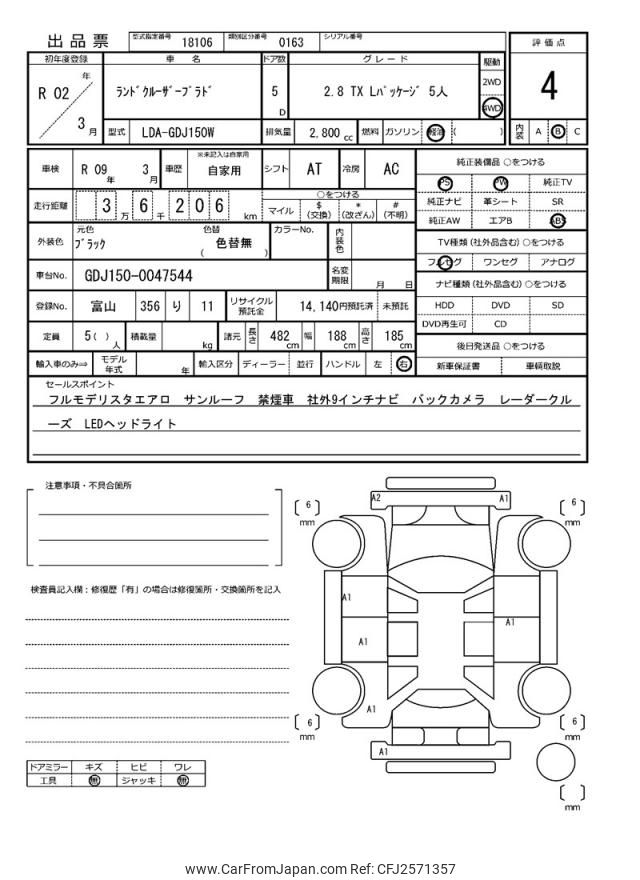 出品票 型式指定番号 18106 類別区分番号 0163 シリアル番号
評価点
4
内装 A B C
初年度登録 車名 ドア数 グレード 駆動
R 02 年 3 月
ランドクルーザープラド 5 D 2.8 TX Lパッケージ 5人
2WD
4WD
型式 LDA-GDJ150W 排気量 2,800 cc 燃料 ガソリン 軽油 ( )
車検 R 09 年 3 月 車歴 ※未記入は自家用 自家用 シフト AT 冷房 AC
走行距離 3 万 6 千 2 0 6 km
○をつける
マイル $ (交換) * (改ざん) # (不明)
外装色 元色 ブラック 色替 ( 色替無 ) カラーNo. 内装色
車台No. GDJ150-0047544 名変期限 月 日
登録No. 富山 356 り 11 リサイクル預託金 14,140円預託済 未預託
定員 5( ) 人 積載量 kg 諸元 長さ 482 cm 幅 188 cm 高さ 185 cm
輸入車のみ⇒ モデル年式 年 輸入区分 ディーラー 並行 ハンドル 左 右
純正装備品 ○をつける
PS PW 純正TV
純正ナビ 革シート SR
純正AW エアB ABS
TV種類(社外品含む)○をつける
フルセグ ワンセグ アナログ
ナビ種類(社外品含む)○をつける
HDD DVD SD
DVD再生可 CD
後日発送品 ○をつける
新車保証書 車輌取説
セールスポイント
フルモデリスタエアロ サンルーフ 禁煙車 社外9インチナビ バックカメラ レーダークル
ーズ LEDヘッドライト
注意事項・不具合箇所
検査員記入欄：修復歴「有」の場合は修復箇所・交換箇所を記入
ドアミラー キズ ヒビ ワレ
工具 無 ジャッキ 無
[ 6 ] mm
A2 A1
[ 6 ] mm
A1
A1
A1
A1
[ 6 ] mm
A1
[ 6 ] mm
[ ] mm
www.CarFromJapan.com Ref: CFJ2571357